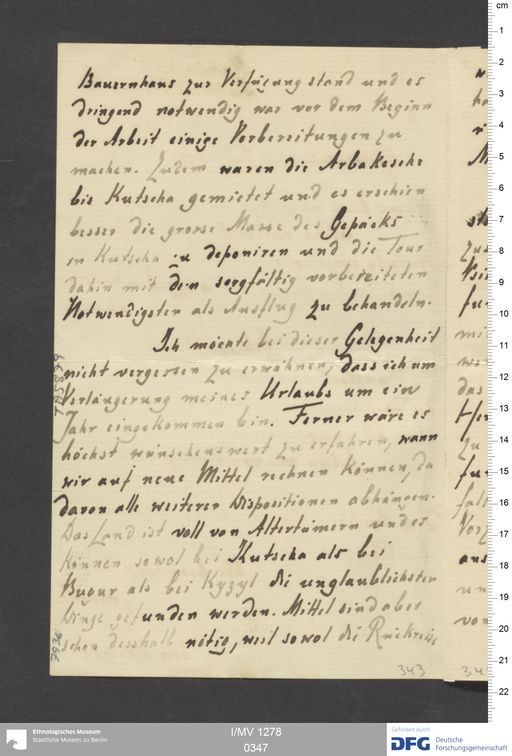 Bauernhaus zur Verfügung stand und es
dringend notwendig war vor dem Beginn
der Arbeit einige Vorbereitungen zu
machen. Zudem waren die Arbakesche
bis Kutscha gemietet und es erschien
besser die grosse Masse des Gepäcks
in Kutscha zu deponiren und die Tour
dahin mit den sorgfältig vorbereiteten
Notwendigsten als Ausflug zu behandeln.
Ich moechte bei dieser Gelegenheit
nicht vergessen zu erwähnen, dass ich um
Verlängerung meines Urlaubs um ein
Jahr eingekommen bin. Ferner wäre es
höchst wünschenswert zu erfahren, wann
wir auf neue Mittel rechnen können, da
davon alle weiteren Dispositionen abhängen.
Das Land ist voll von Altertümern und es
können sowol bei Kutscha als bei
Bugur als bei Kyzyl die unglaublichsten
Dinge gefunden werden. Mittel sind aber
schon desshalb nötig, weil sowol die Rückreise
343
Ethnologisches Museum
Staatliche Museen zu Berlin
I/MV 1278
0347
Gefördert durch
DFG Deutsche
Forschungsgemeinschaft
cm
1
2
3
4
5
6
7
8
9
10
11
12
13
14
15
16
17
18
19
20
21
22